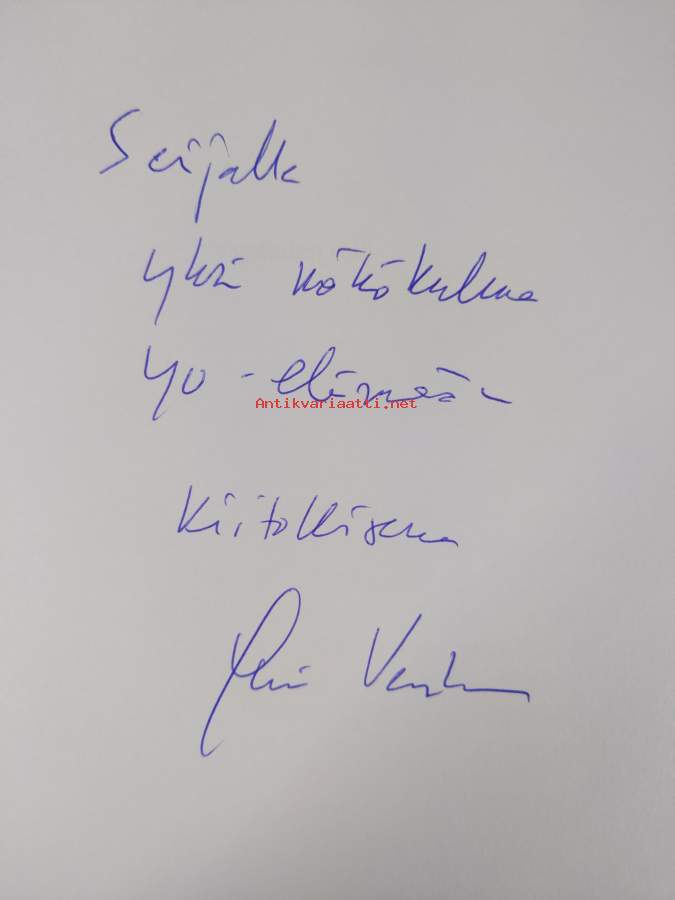 Seijalle
yksi näkökulma
YO-elämään
Antikvariaatti.net
Kiitollisena